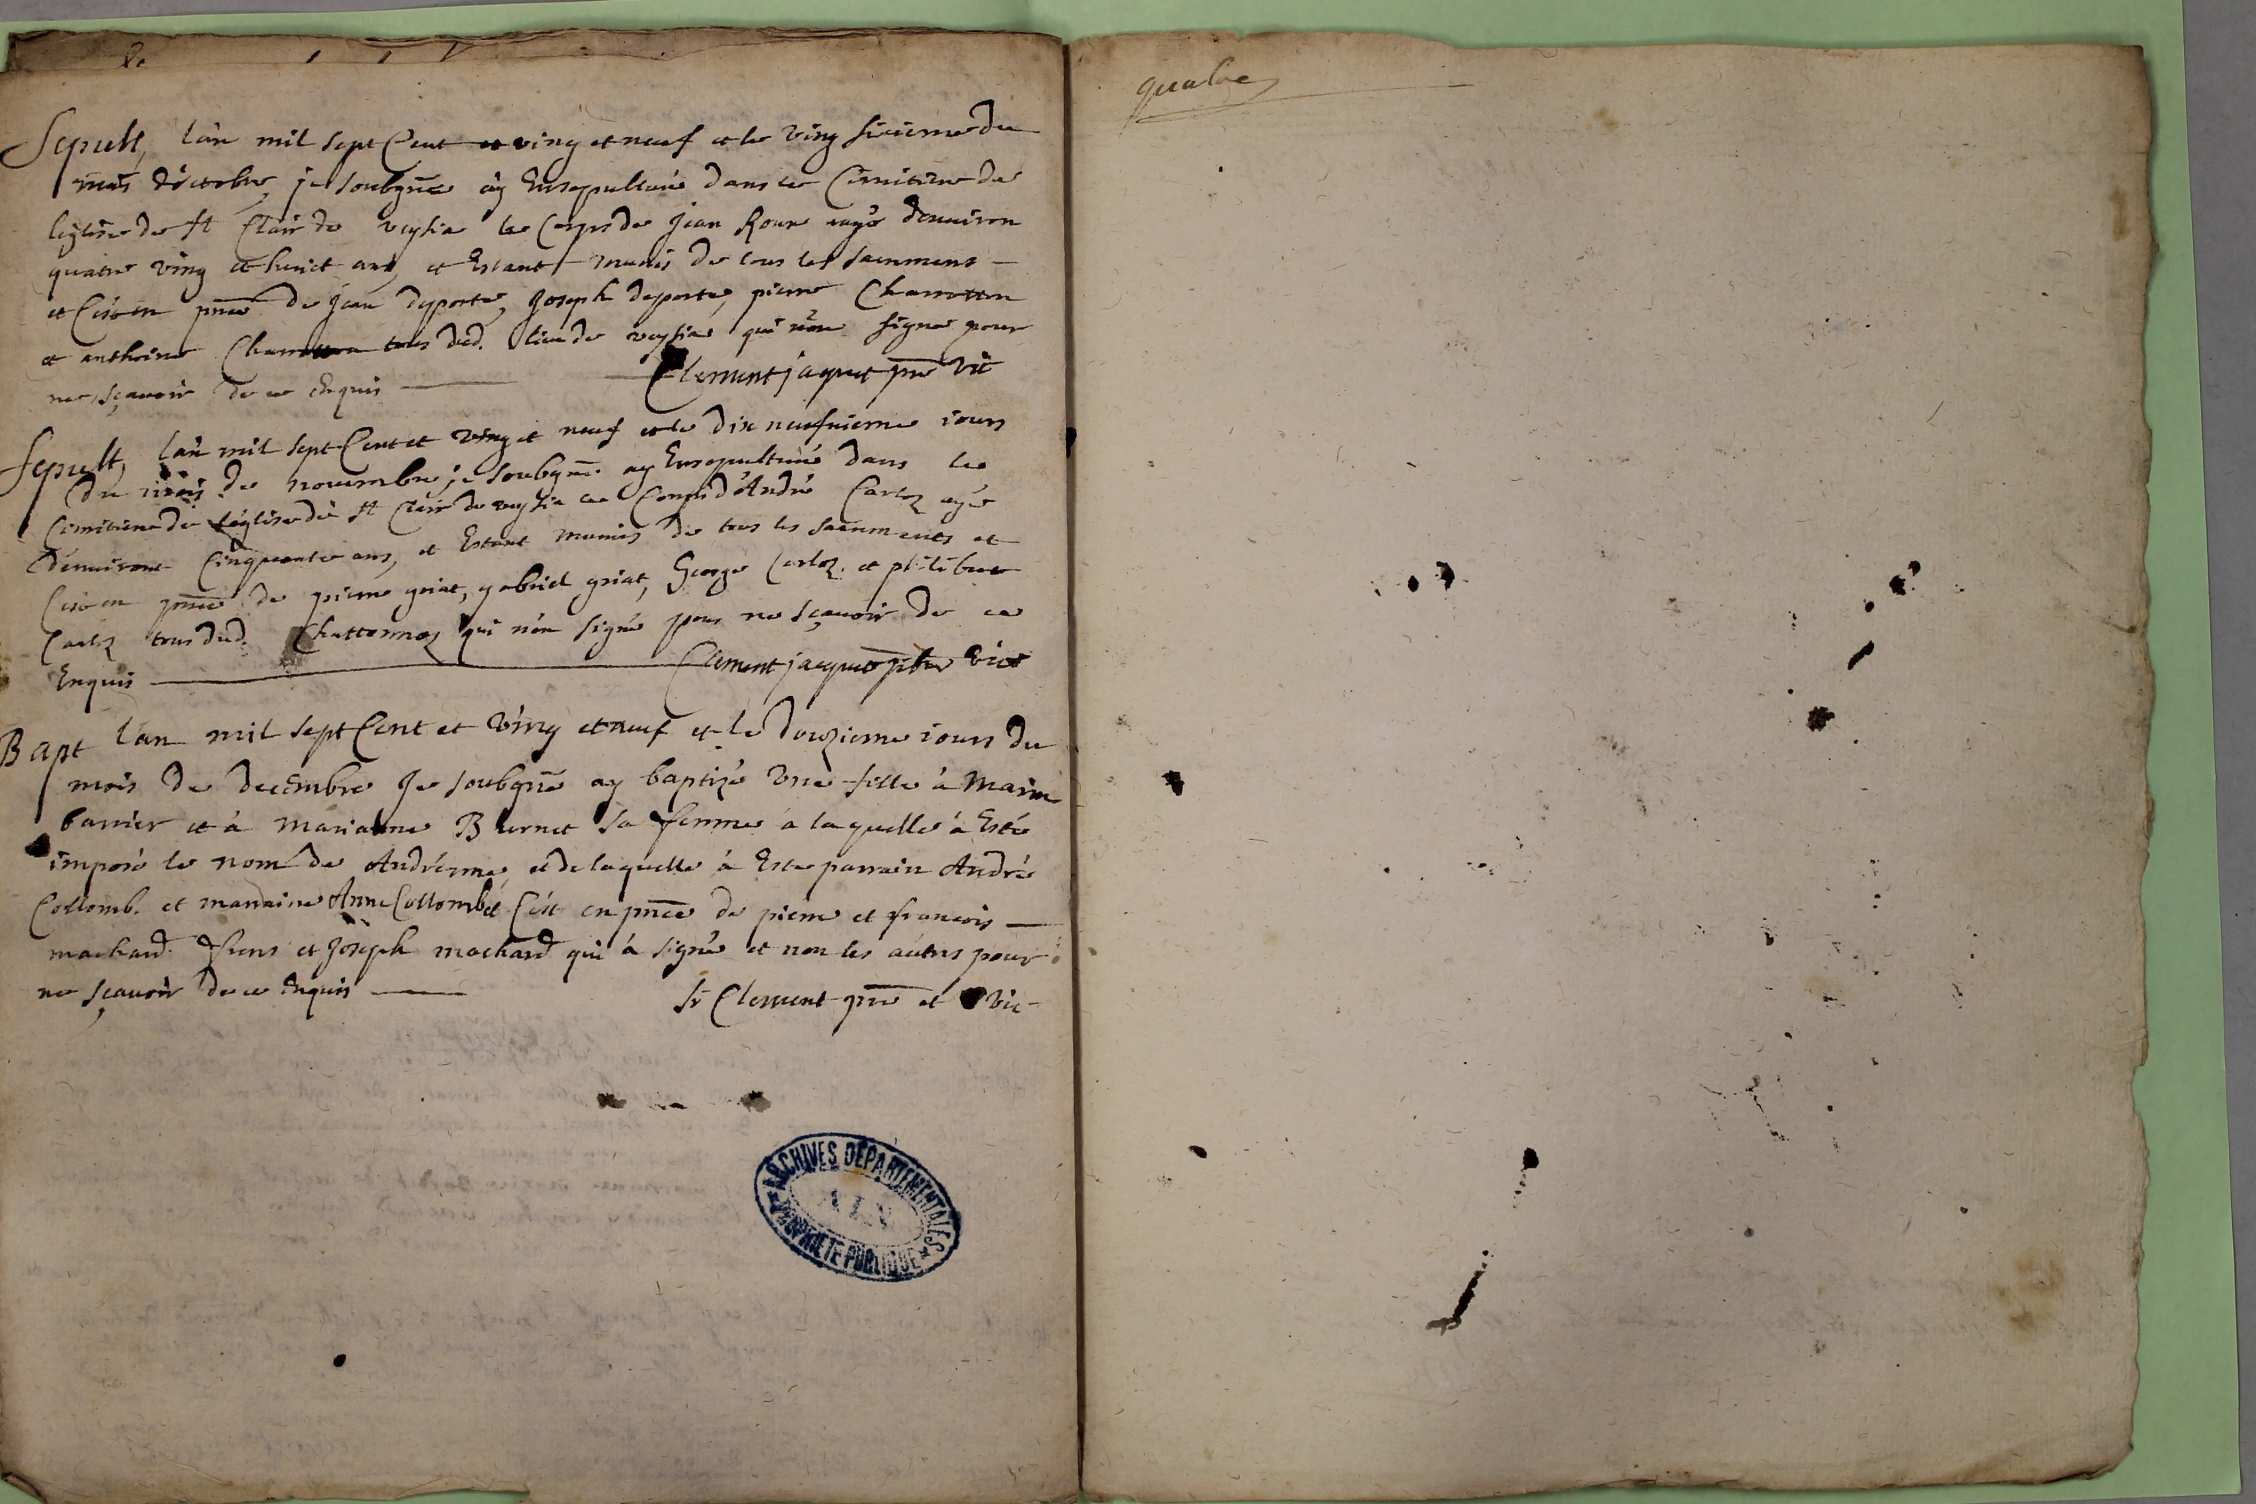 Sepult, lan mil sept Cent et ving et neuf et le ving sixieme du
mois d'octobre, je soubgne ay Ensepulturé dans le Cimitiere de
leglise de st Clair de veysia le Corps de Jean Roux eagé denuiron
quatre ving et huict ans, et Estant munis de tous les sacrements
et Cest en pnce de Jean deporte, Joseph deporte, pierre Charretton
et anthoine Charretton tous dud. lieu de veysia qui n'on signe pour
ne sçauoir de ce Enquis
Clement jaquet pre vic
Sepult, lan mil sept Cent et ving et neuf et le dix neufuieme iours
du mois de nouembre je soubgne ay Ensepulturé dans le
Cimitiere de l'eglise de st Clair de veysia le Corps d'André Carloz agé
d'enuiront Cinquante ans, et Estant munis de tous les sacrments et
Cest en pnce de pierre griat, gabriel griat, George Carloz. et philibert
Carloz tous dud. Chattonnaz qui n'on signé pour ne sçauoir de ce
Enquis
Clement jacquet ptre vic
Bapt l'an mil sept Cent et ving et neuf et le douzieme iours du
mois de decembre Je soubgne ay baptizé vne fille à Marin
barrier et à marianne Burnet sa femme a laquelle à Esté
imposé le nom de Andréenne, et de laquelle à Esté parrain André
Collomb. et marraine Anne Collomb et C'est en pnce de pierre et francois
machard freres et Joseph machard qui à signé et non les autres pour
ne sçauoir de ce Enquis
Sr Clement pre et vic
ARCHIVES DÉPARTEMENTALES
PROPRIÉTÉ PUBLIQUE